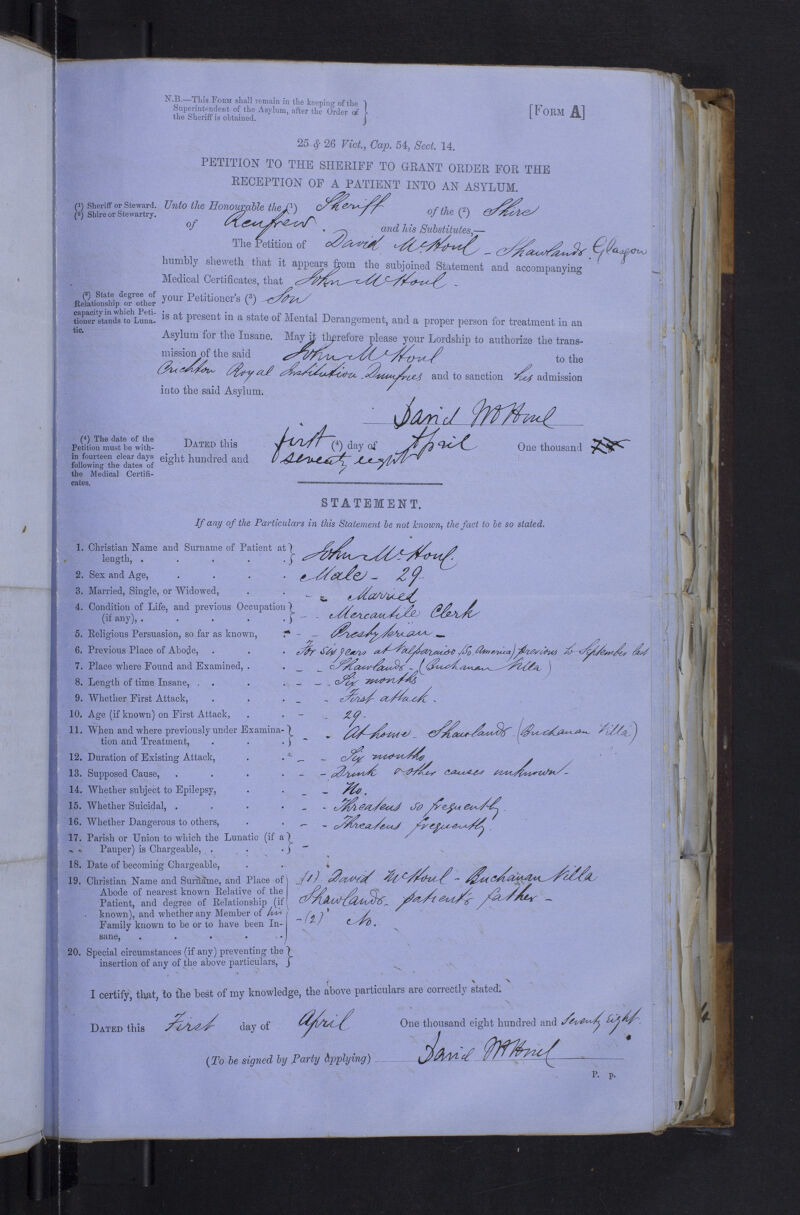 N.B.—This Form shall remain in the keeping of the
Superintendent of the Asylum, after the Order of
the Sheriff is obtained.
[Form A]
25 & 26 Vict., Cap. 54, Sect. 14.
PETITION TO THE SHERIFF TO GRANT ORDER FOR THE
RECEPTION OF A PATIENT INTO AN ASYLUM.
(1) Sheriff or Steward.
(2) Shire or Stewartry.
Unto the Honourable the (1) Sheriff of the (2) Shire
of Renfrew. and his Substitutes,—
The Petition of David McHoul - Shawlands. Glasgow
humbly sheweth that it appears from the subjoined Statement and accompanying
Medical Certificates, that John McHoul.
(3) State degree of
Relationship or other
capacity in which Peti-
tioner stands to Luna-
tic.
your Petitioner's (3) Son
is at present in a state of Mental Derangement, and a proper person for treatment in an
Asylum for the Insane. May it therefore please your Lordship to authorize the trans-
mission of the said John McHoul to the
Crichton Royal Institution Dumfries and to sanction his admission
into the said Asylum.
David McHoul
(4) The date of the
Petition must be with-
in fourteen clear days
following the dates of
the Medical Certifi-
cates.
Dated this first (4) day of April One thousand
eight hundred and seventy eight
STATEMENT.
If any of the Particulars in this Statement be not known, the fact to be so stated.
1. Christian Name and Surname of Patient at
length, . John McHoul.
2. Sex and Age, Male - 29.
3. Married, Single, or Widowed, - Married
4. Condition of Life, and previous Occupation
(if any), . - Mercantile Clerk
5. Religious Persuasion, so far as known, - Presbyterian -
6. Previous Place of Abode, . For six years at Valparaiso (So. America) previous to September last
7. Place where Found and Examined, . - Shawlands - (Buchanan Villa)
8. Length of time Insane, . - Six months
9. Whether First Attack, - First attack.
10. Age (if known) on First Attack, - 29.
11. When and where previously under Examina-
tion and Treatment, - At home - Shawlands (Buchanan Villa)
12. Duration of Existing Attack, - Six months
13. Supposed Cause, - Drink & other causes unknown -
14. Whether subject to Epilepsy, - No.
15. Whether Suicidal, . - Threatens so frequently.
16. Whether Dangerous to others, - Threatens frequently.
17. Parish or Union to which the Lunatic (if a
Pauper) is Chargeable, . -
18. Date of becoming Chargeable,
19. Christian Name and Surname, and Place of
Abode of nearest known Relative of the
Patient, and degree of Relationship (if
known), and whether any Member of his
Family known to be or to have been In-
sane,
(1) David McHoul - Buchanan Villa
Shawlands - patient's father -
- (2) No.
20. Special circumstances (if any) preventing the
insertion of any of the above particulars,
I certify, that, to the best of my knowledge, the above particulars are correctly stated.
Dated this First day of April One thousand eight hundred and seventy eight.
(To be signed by Party Applying) David McHoul
P. p.